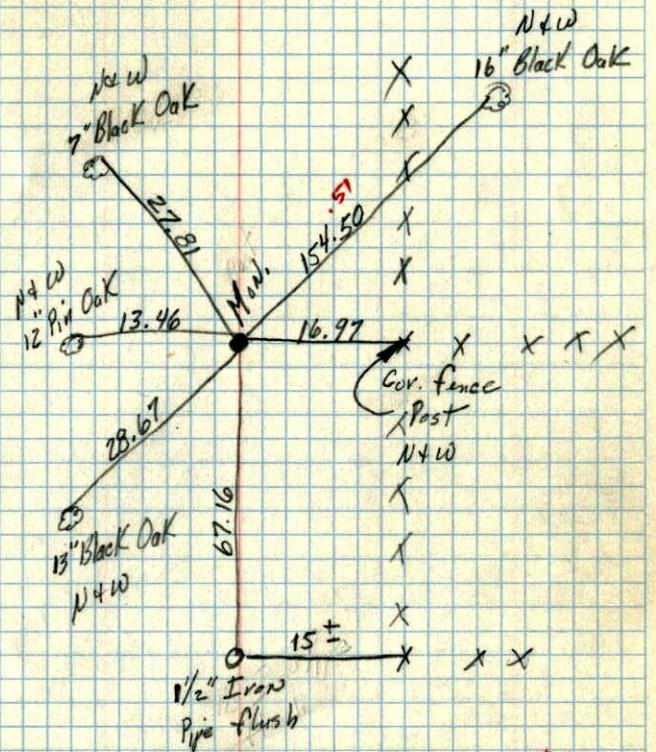 N&W
16" Black Oak
N&W
7" Black Oak
.51
154.50
27.81
Mon.
N&W
12" Pin Oak
13.46
16.97
Cor. fence
Post
N&W
28.67
13" Black Oak
N&W
67.16
15±
1 1/2" Iron
Pipe flush